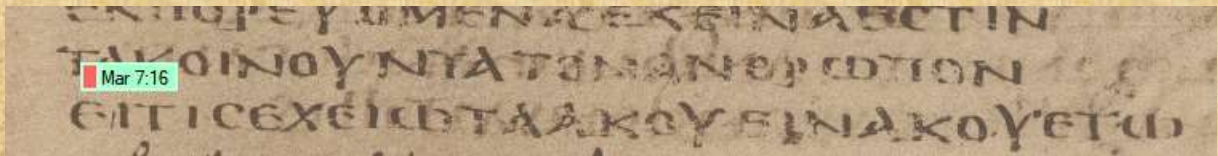 ΕΚΠΟΡΕΥΩΜΕΝΑΕΚΕΙΝΑΕϹΤΙΝ
ΤΑΚΟΙΝΟΥΝΤΑΤΟΝΑΝΘΡΩΠΟΝ
Mar 7:16
ΕΙΤΙϹΕΧΕΙΩΤΑΑΚΟΥΕΙΝΑΚΟΥΕΤΩ